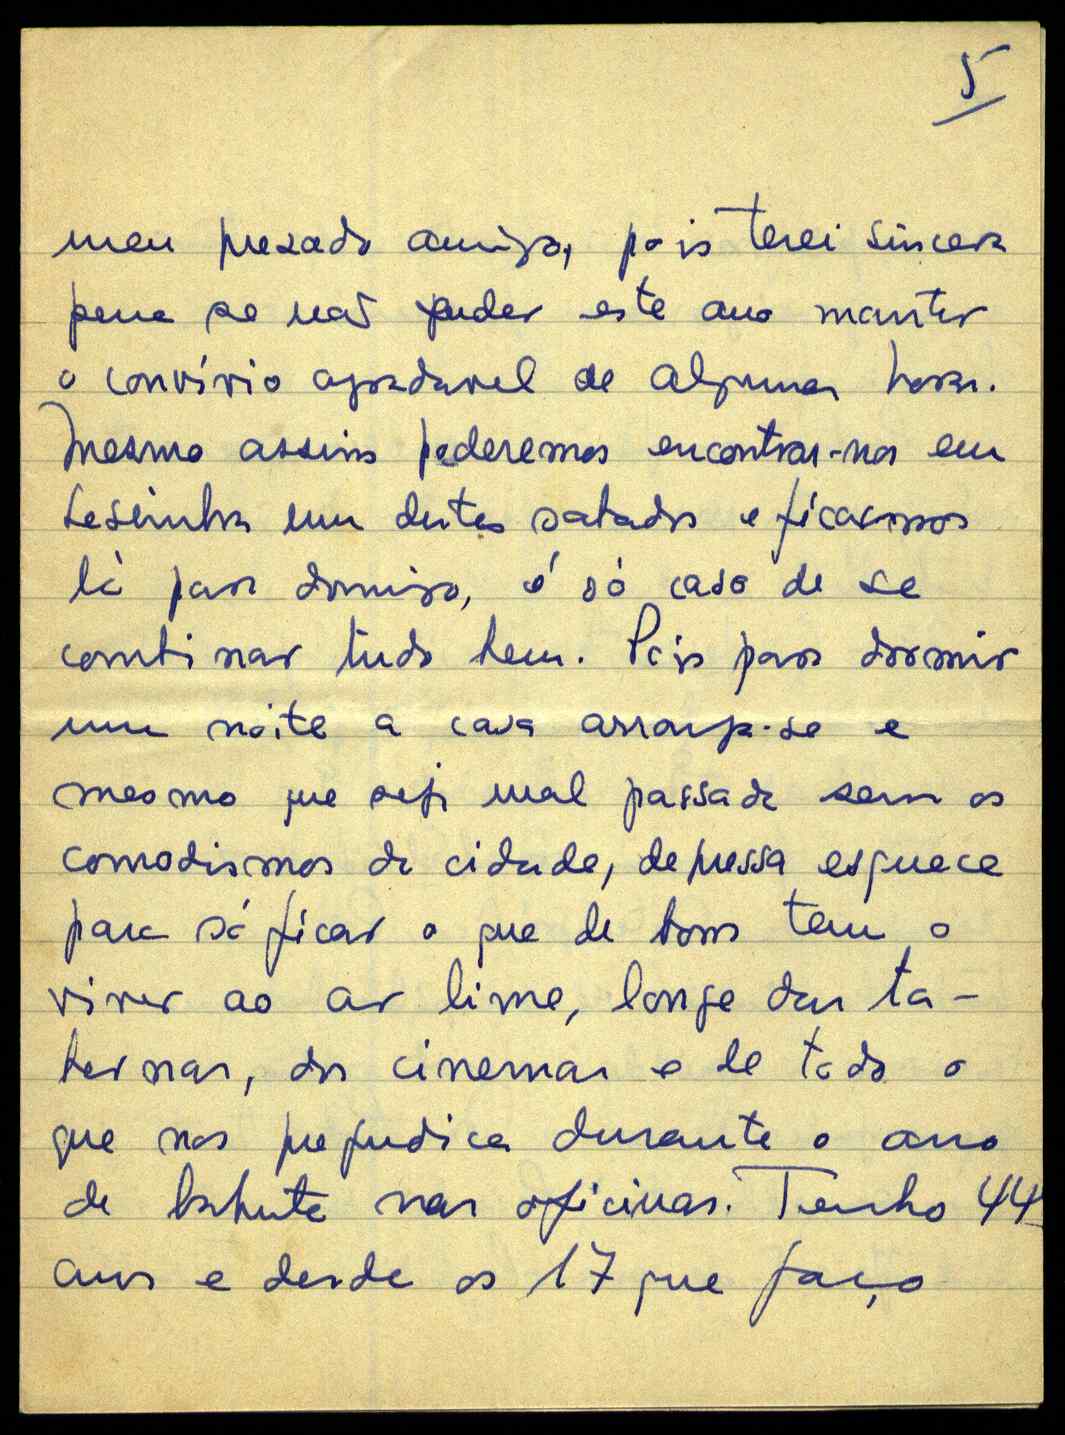 5
meu prezado amigo, pois terei sincera
pena se não puder este ano manter
o convívio agradavel de algumas horas.
Mesmo assim poderemos encontrar-nos em
Sesimbra num destes sabados e ficarmos
lá para domingo, é só caso de se
combinar tudo bem. Pois para dormir
uma noite a casa arranja-se e
mesmo que seja mal passada sem os
comodismos da cidade, depressa esquece
para só ficar o que de bom tem o
viver ao ar livre, longe das ta-
bernas, dos cinemas e de todo o
que nos prejudica durante o ano
de labuta nas oficinas. Tenho 44
anos e desde os 17 que faço